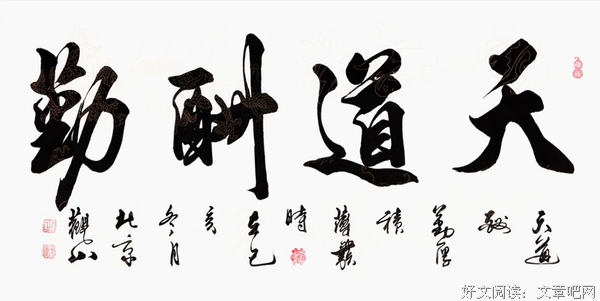 天道酬勤
天道酬勤厚積薄發時在己亥冬月北京觀山
好文阅读：文章吧网